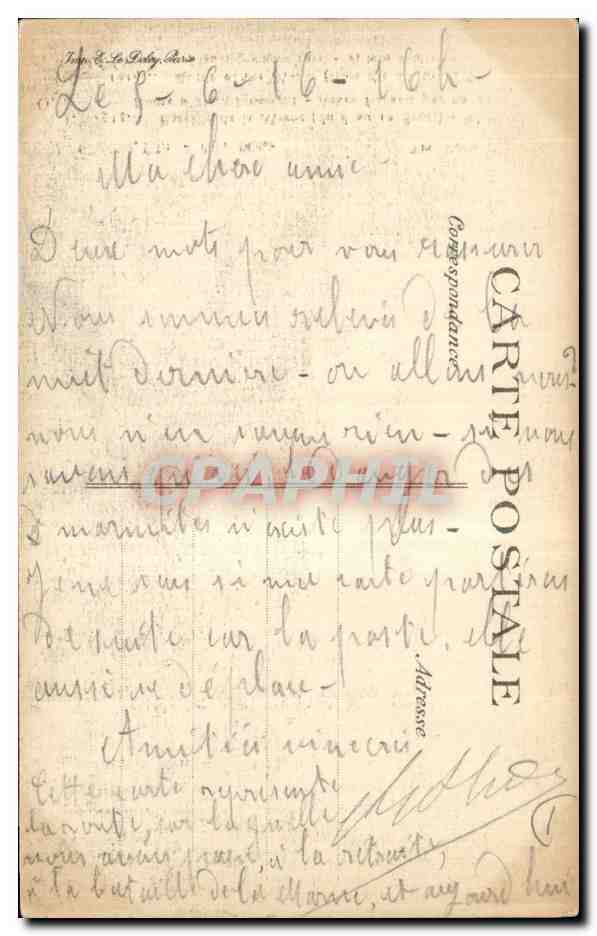 Imp. E. Le Deley, Paris
Le 5-6-16-16h-
Ma chère amie
Deux mots pour vous rassurer
Nous sommes relevés de la
nuit dernière - ou allons nous?
nous n'en savons rien - si nous
savons que le danger des
marmites n'existe plus -
Je ne sais si ma carte partira
de suite car la poste, elle
aussi se déplace -
Amitiés sincères
Cette carte représente
la route, sur laquelle
nous avons passé, à la retraite,
à la bataille de la Marne, et aujourd'hui
CARTE POSTALE
Correspondance
Adresse
CPAPHIL